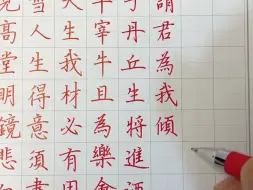 請君為我傾
子丹丘生將進酒
羊宰牛且為樂會
天生我材必有用
雪人生得意須盡
見高堂明鏡悲